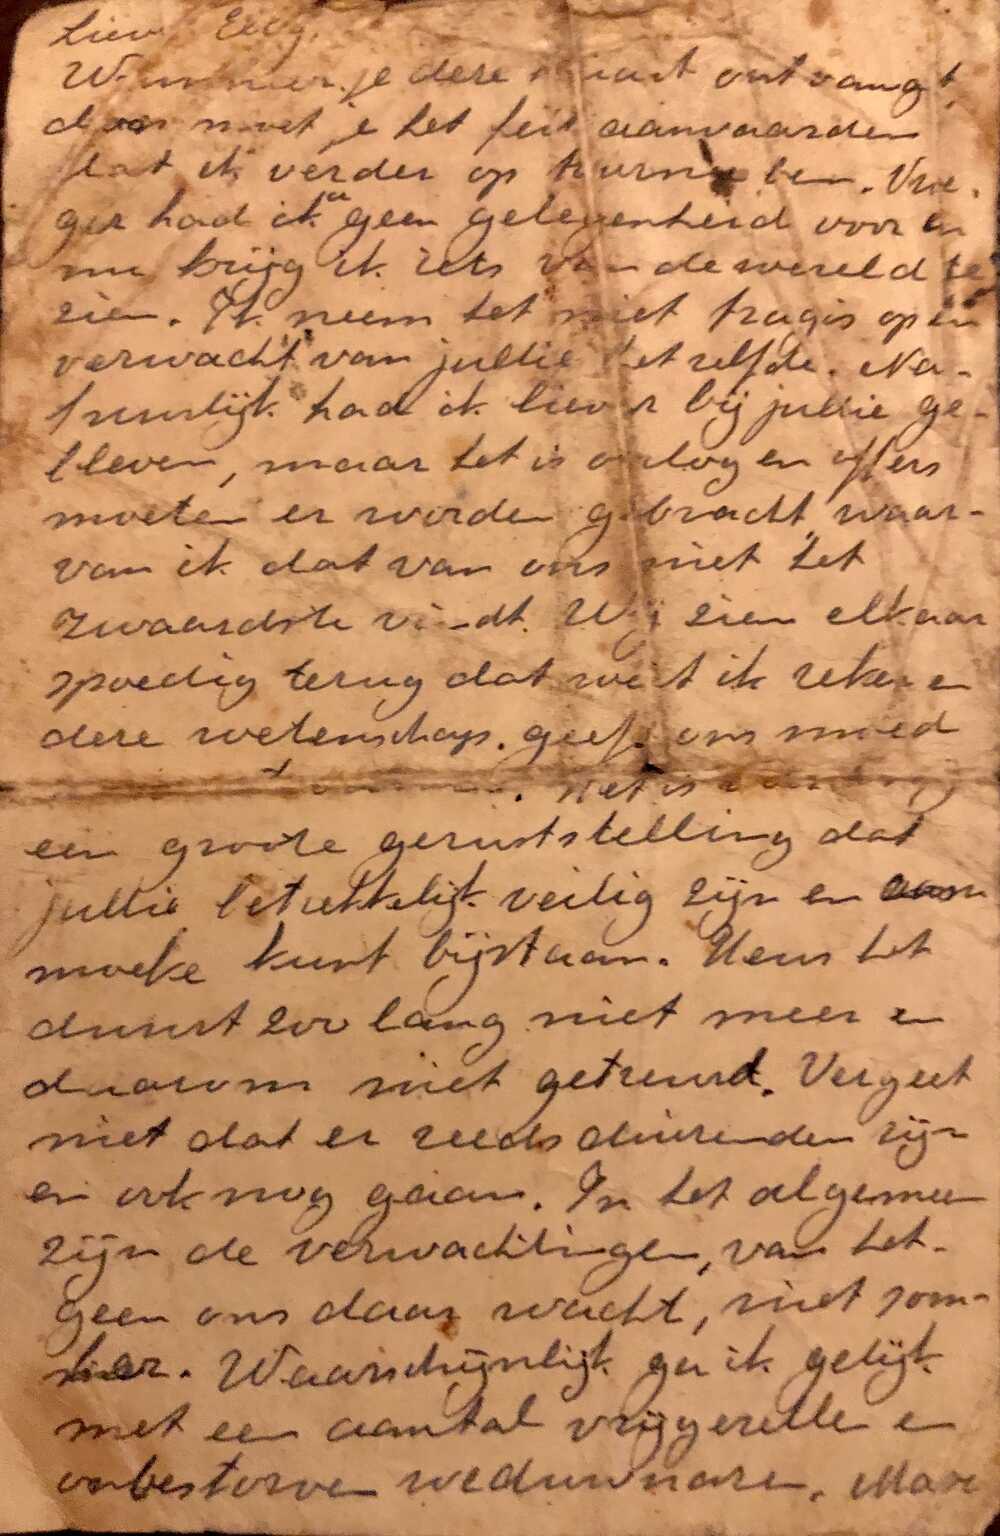 Lieve
Wanneer je deze kaart ontvangt,
dan moet je het feit aanvaarden
dat ik verder op tournee ben. Vroe-
ger had ik er geen gelegenheid voor en
nu krijg ik iets van de wereld te
zien. Ik neem het niet tragis op en
verwacht van jullie het zelfde. Na-
tuurlijk had ik liever bij jullie ge-
bleven, maar het is oorlog en offers
moeten er worden gebracht, waar-
van ik dat van ons niet het
zwaardste vindt. Wij zien elkaar
spoedig terug dat weet ik zeker en
deze wetenschap geeft ons moed
Het is
een groote geruststelling dat
jullie betrekkelijk veilig zijn en
moeke kunt bijstaan. Heus het
duurt zoo lang niet meer en
daarom niet getreurd. Vergeet
niet dat er reeds duizenden zijn
en ook nog gaan. In het algemeen
zijn de verwachtingen, van het-
geen ons daar wacht, niet som-
ber. Waarschijnlijk ga ik gelijk
met een aantal vrijgezellen en
onbestorven weduwnaren. Maar